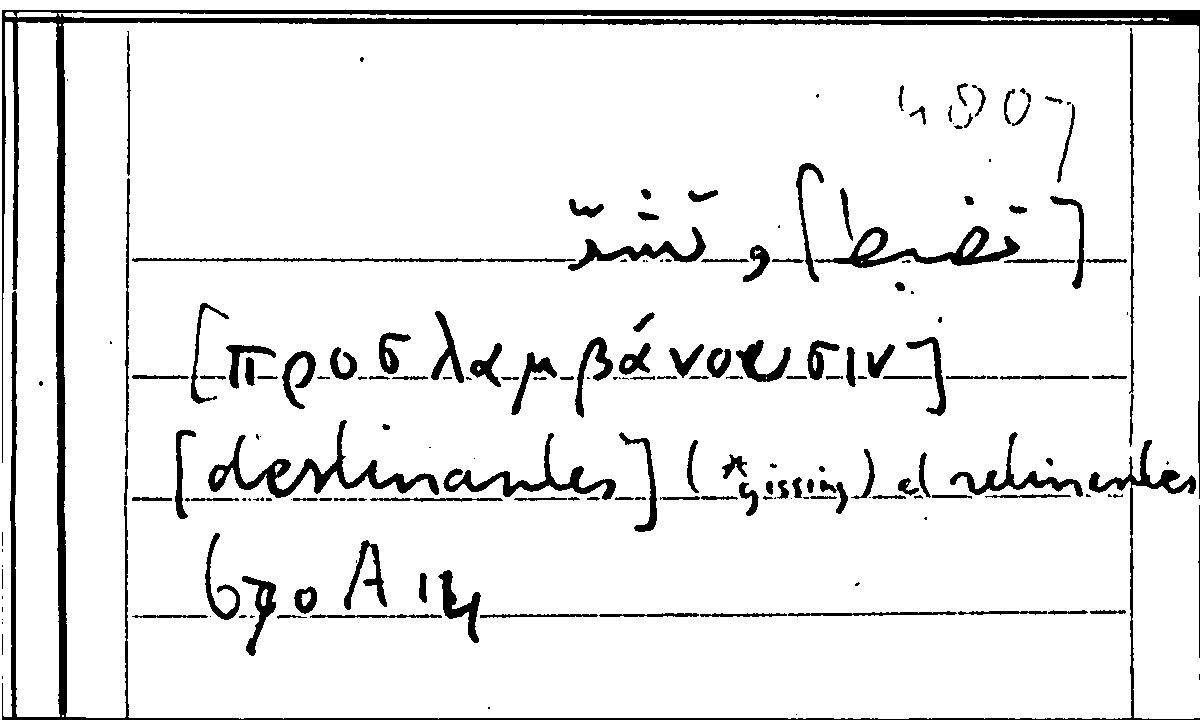 4807
[προσλαμβάνουσιν]
[destinantes] (*gissing) et retinentes
670 A 14